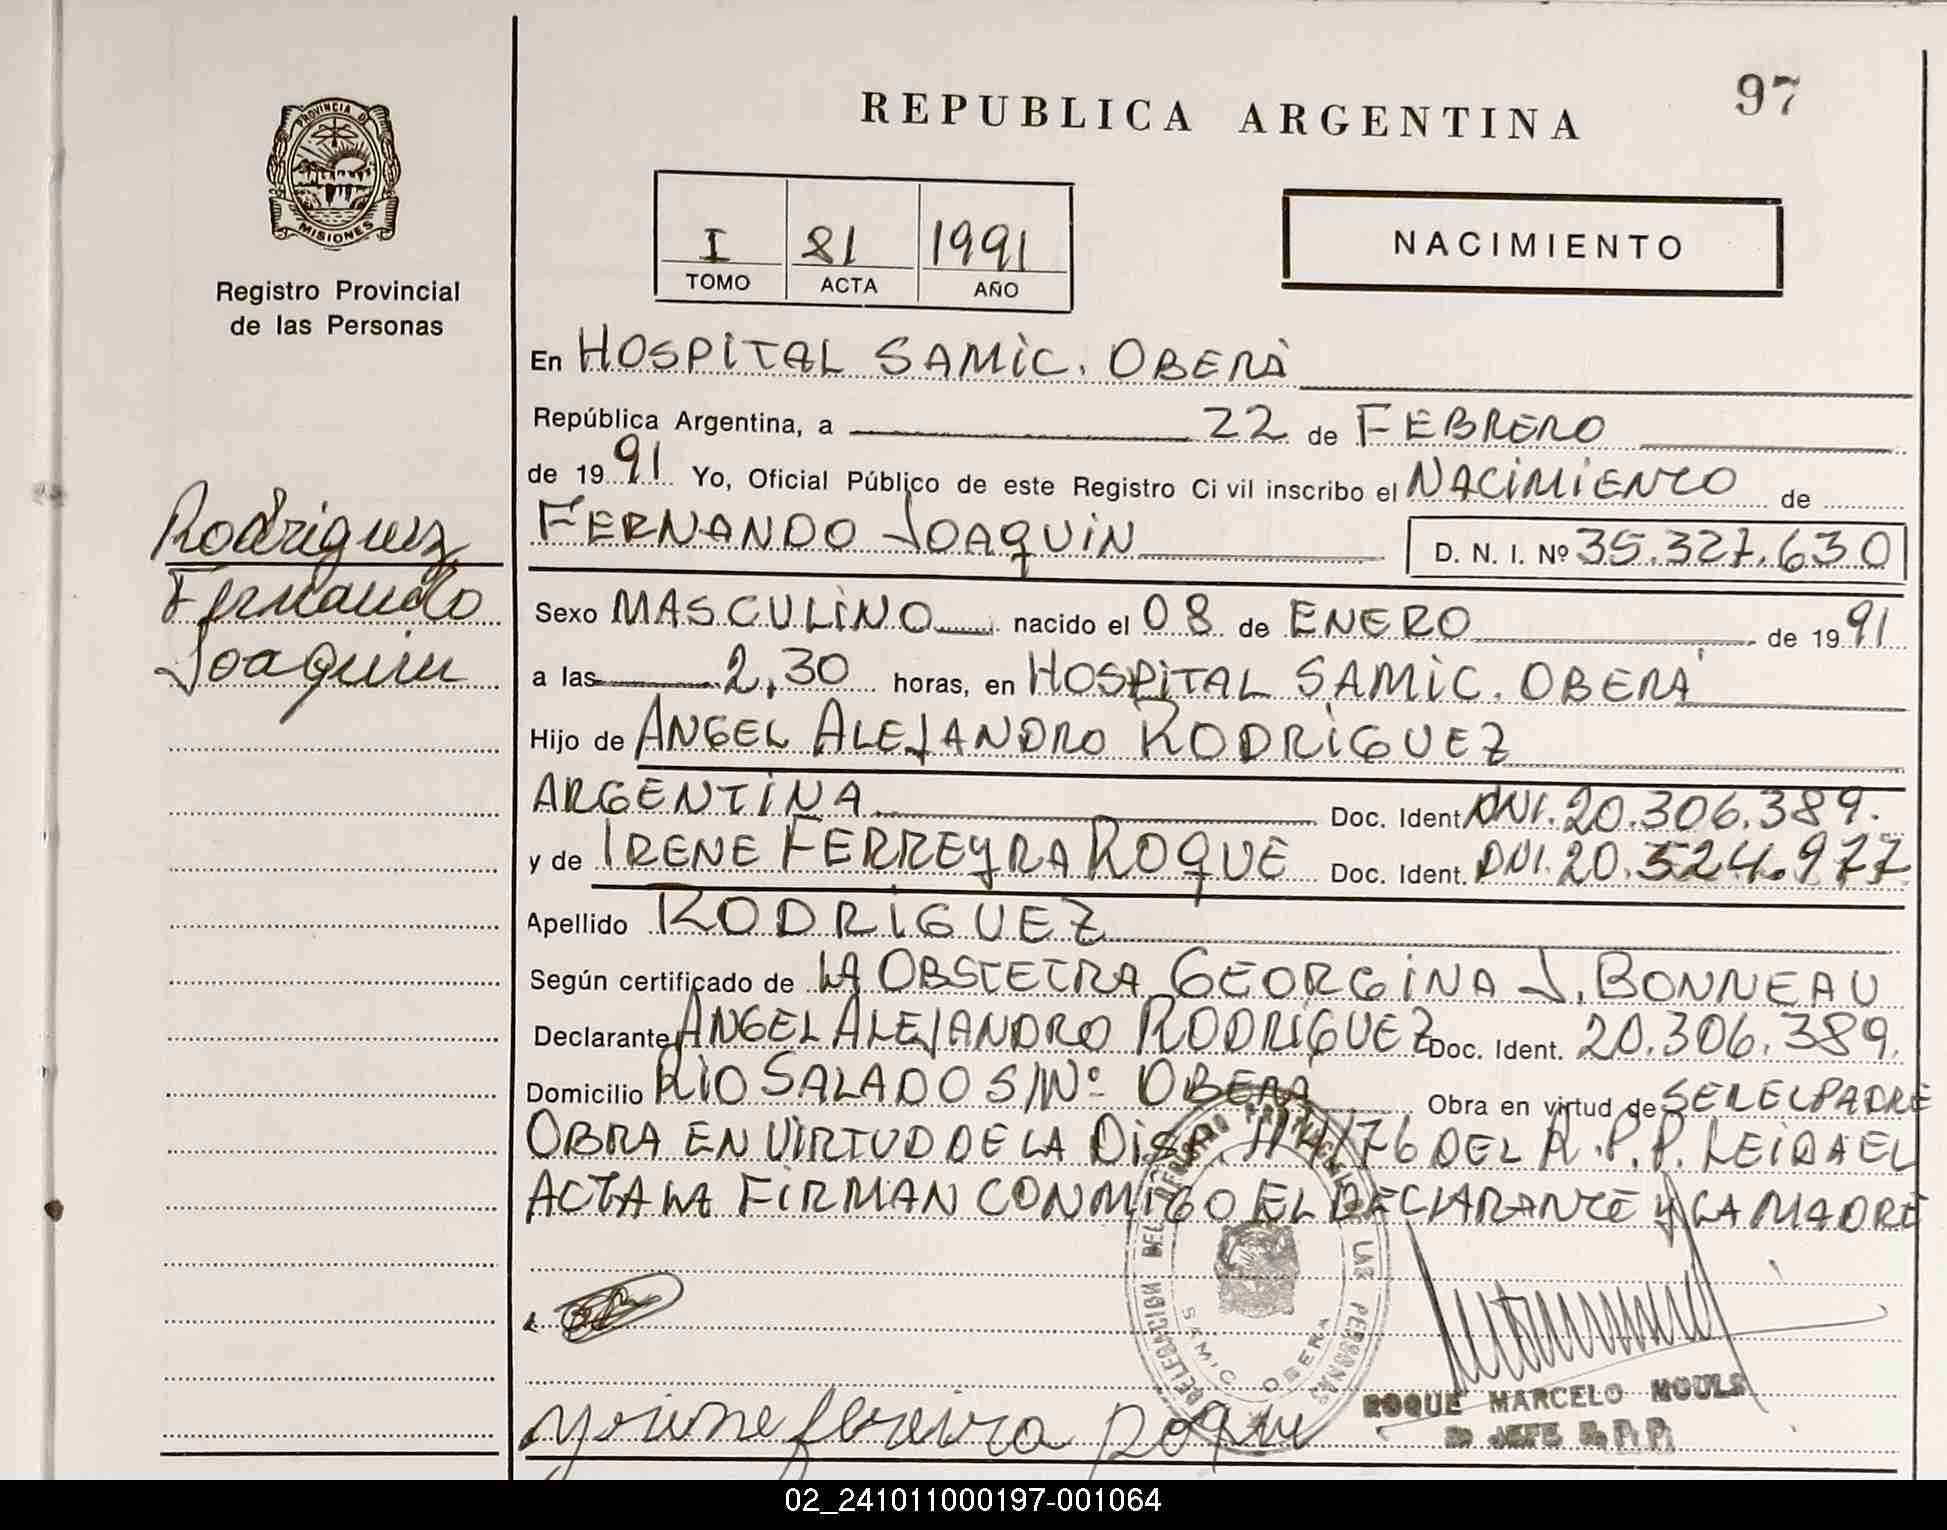 97
REPUBLICA ARGENTINA
PROVINCIA DE
MISIONES
Registro Provincial
de las Personas
I 81 1991
TOMO ACTA AÑO
NACIMIENTO
En HOSPITAL SAMIC. OBERÁ
República Argentina, a 22 de FEBRERO
de 1991 Yo, Oficial Público de este Registro Civil inscribo el NACIMIENTO de
FERNANDO JOAQUIN D. N. I. Nº 35.327.630
Rodriguez
Fernando
Joaquin
Sexo MASCULINO nacido el 08 de ENERO de 1991
a las 2,30 horas, en HOSPITAL SAMIC. OBERÁ
Hijo de ANGEL ALEJANDRO RODRIGUEZ
ARGENTINA Doc. Ident. DNI. 20.306.389.
y de IRENE FERREYRA ROQUE Doc. Ident. DNI. 20.524.977
Apellido RODRIGUEZ
Según certificado de LA OBSTETRA GEORGINA J. BONNEAU
Declarante ANGEL ALEJANDRO RODRÍGUEZ Doc. Ident. 20.306.389.
Domicilio RIO SALADO S/Nº OBERA Obra en virtud de SER EL PADRE
OBRA EN VIRTUD DE LA DISP. 114/76 DEL R.P.P. LEIDA EL
ACTA LA FIRMAN CONMIGO EL DECLARANTE Y LA MADRE
DELEGACION DEL REGISTRO PROVINCIAL DE LAS PERSONAS
SAMIC OBERA
yrene ferreira roque
ROQUE MARCELO MOULS
JEFE R.P.P.
02_241011000197-001064